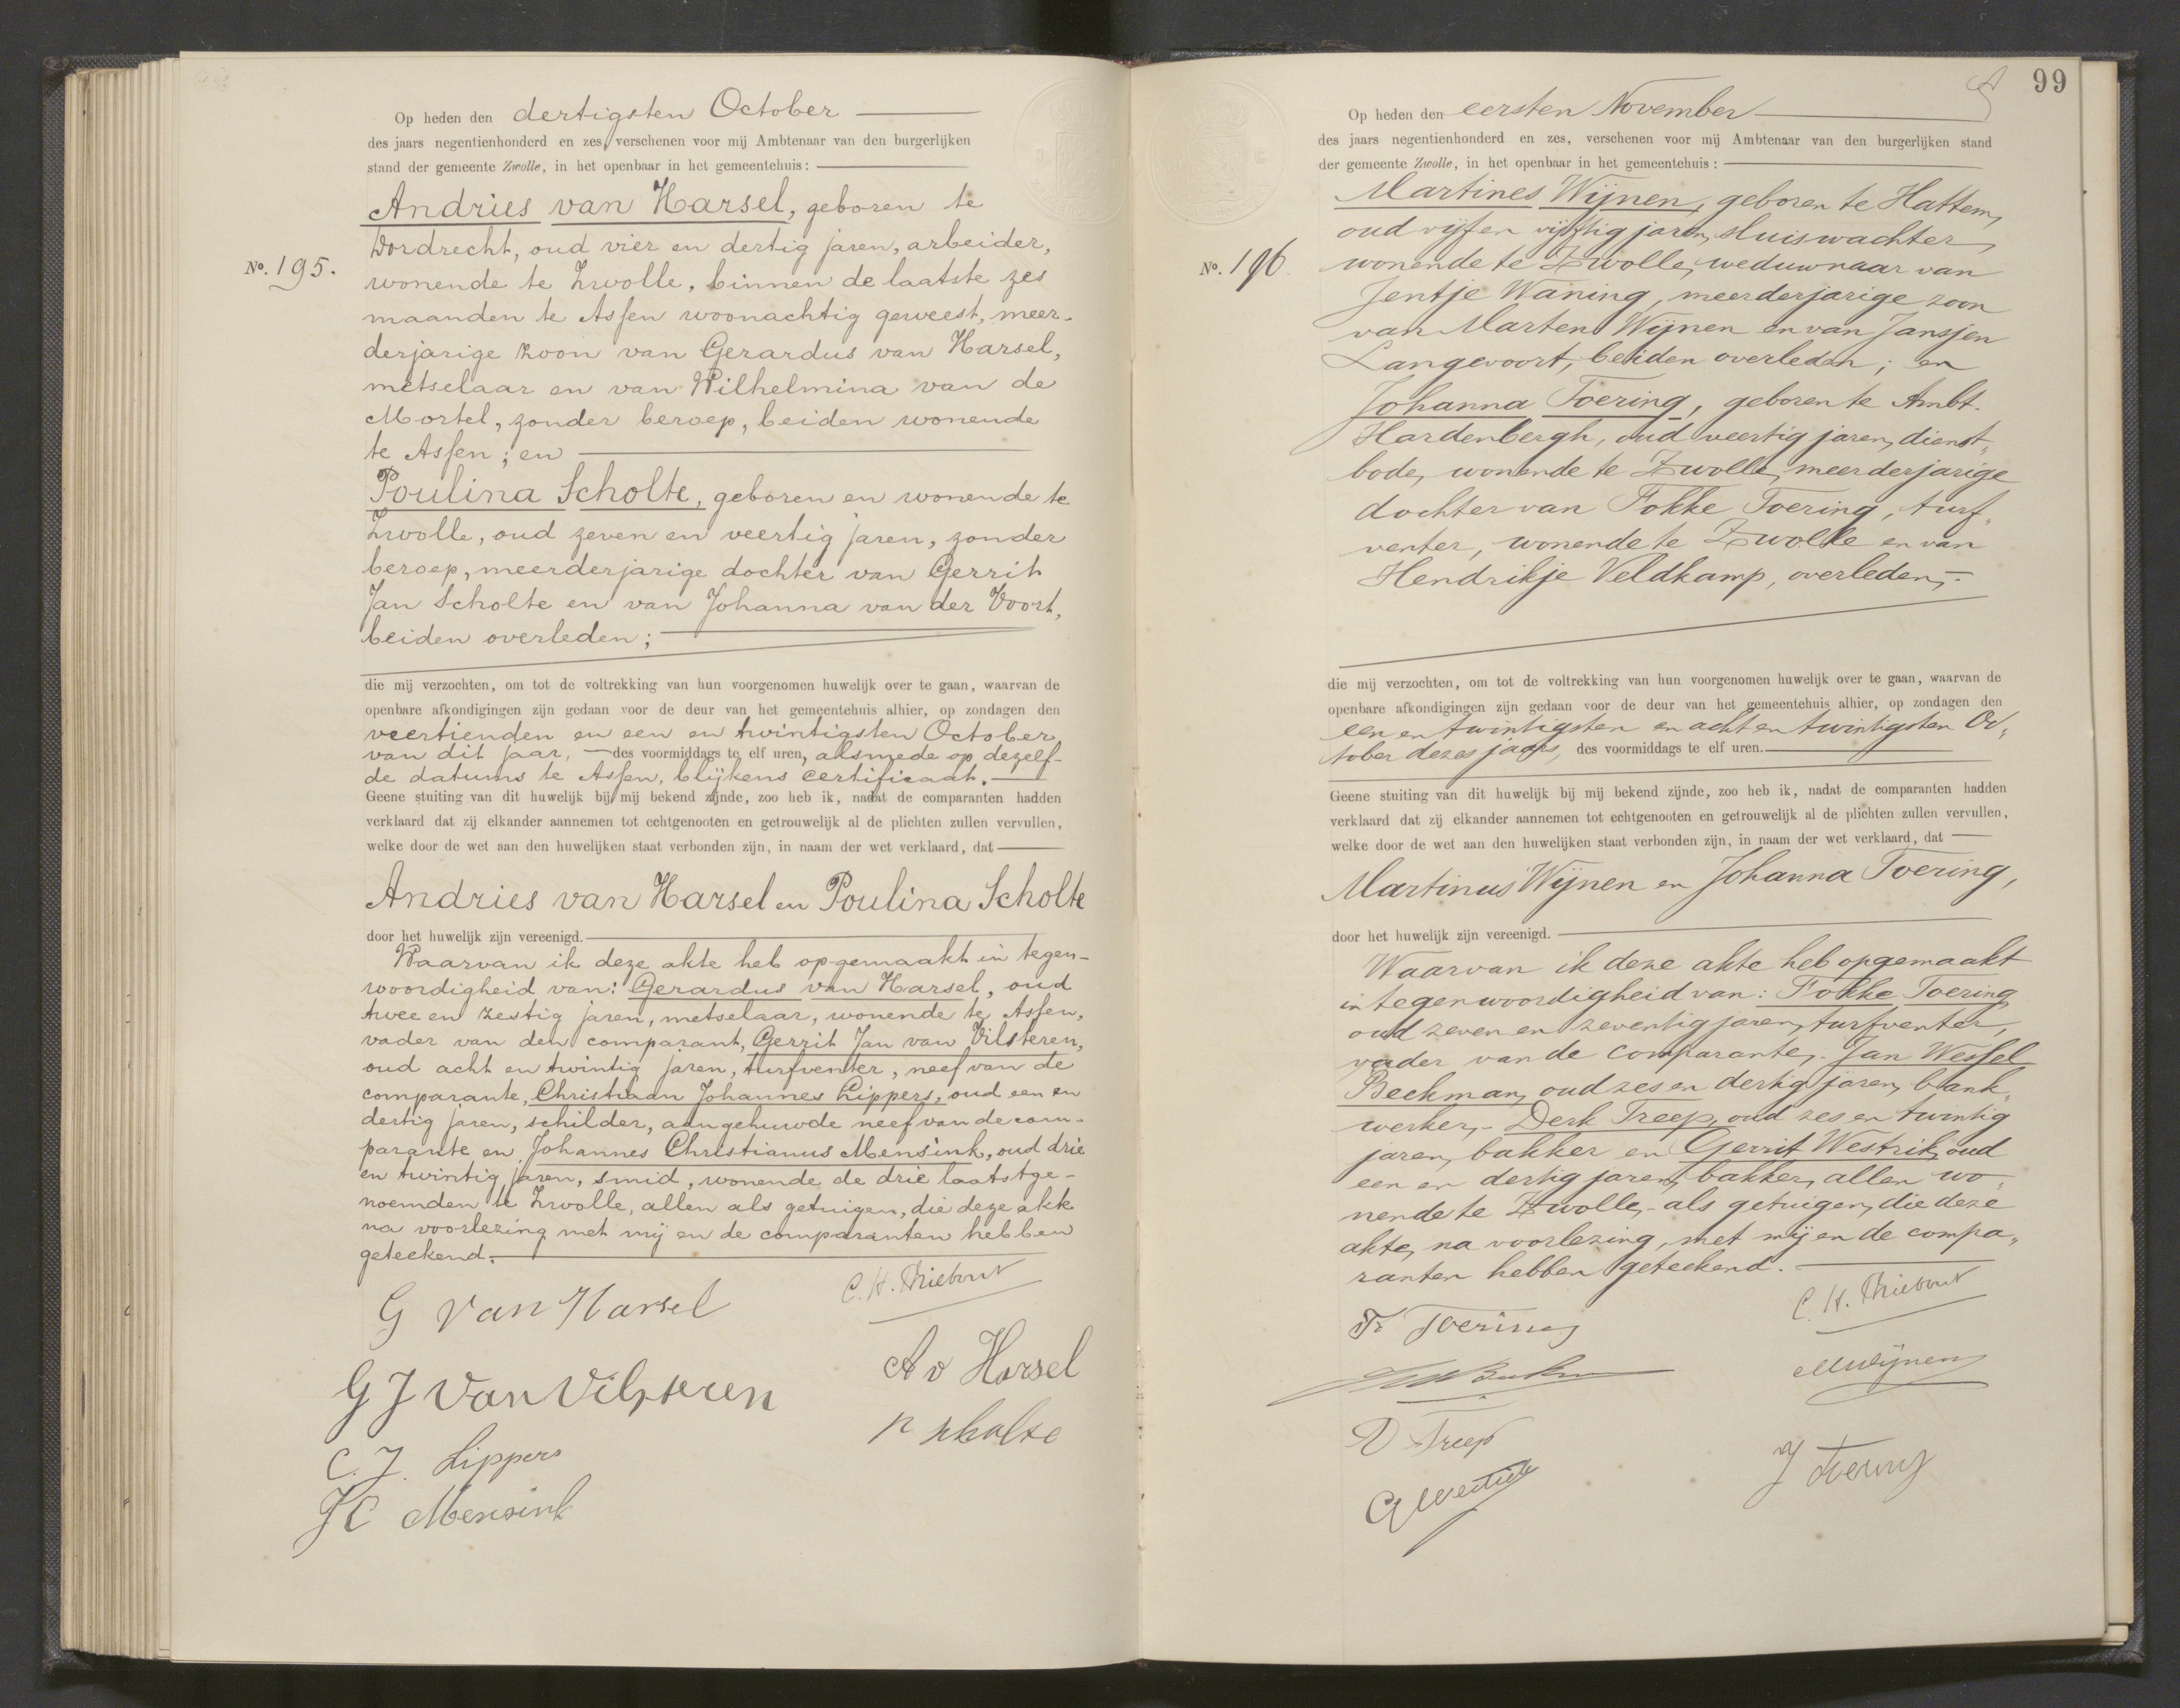 Op heden den dertigsten October
des jaars negentienhonderd en zes, verschenen voor mij Ambtenaar van den burgerlijken
stand der gemeente Zwolle, in het openbaar in het gemeentehuis:
Andries van Harsel, geboren te
Dordrecht, oud vier en dertig jaren, arbeider,
No. 195.
wonende te Zwolle, binnen de laatste zes
maanden te Assen woonachtig geweest, meer-
derjarige zoon van Gerardus van Harsel,
metselaar en van Wilhelmina van de
Mortel, zonder beroep, beiden wonende
te Assen; en
Poulina Scholte, geboren en wonende te
Zwolle, oud zeven en veertig jaren, zonder
beroep, meerderjarige dochter van Gerrit
Jan Scholte en van Johanna van der Voort,
beiden overleden;
die mij verzochten, om tot de voltrekking van hun voorgenomen huwelijk over te gaan, waarvan de
openbare afkondigingen zijn gedaan voor de deur van het gemeentehuis alhier, op zondagen den
veertienden en een en twintigsten October
van dit jaar, des voormiddags te elf uren, alsmede op dezelf-
de datums te Assen, blijkens certificaat.
Geene stuiting van dit huwelijk bij mij bekend zijnde, zoo heb ik, nadat de comparanten hadden
verklaard dat zij elkander aannemen tot echtgenooten en getrouwelijk al de plichten zullen vervullen,
welke door de wet aan den huwelijken staat verbonden zijn, in naam der wet verklaard, dat
Andries van Harsel en Poulina Scholte
door het huwelijk zijn vereenigd.
Waarvan ik deze akte heb opgemaakt in tegen-
woordigheid van: Gerardus van Harsel, oud
twee en zestig jaren, metselaar, wonende te Assen,
vader van den comparant, Gerrit Jan van Vilsteren,
oud acht en twintig jaren, turfventer, neef van de
comparante, Christiaan Johannes Lippers, oud een en
dertig jaren, schilder, aangehuwde neef van de com-
parante en Johannes Christianus Mensink, oud drie
en twintig jaren, smid, wonende de drie laatstge-
noemden te Zwolle, allen als getuigen, die deze akte
na voorlezing met mij en de comparanten hebben
geteekend.
G van Harsel
C. H. Thiebout
G J van Vilsteren
A v Harsel
C. J. Lippers
P Scholte
J C Mensink
99
Op heden den eersten November
des jaars negentienhonderd en zes, verschenen voor mij Ambtenaar van den burgerlijken stand
der gemeente Zwolle, in het openbaar in het gemeentehuis:
Martines Wijnen, geboren te Hattem,
oud vijf en vijftig jaren, sluiswachter,
No. 196
wonende te Zwolle, weduwnaar van
Jentje Waning, meerderjarige zoon
van Marten Wijnen en van Jansjen
Langevoort, beiden overleden; en
Johanna Toering, geboren te Ambt-
Hardenbergh, oud veertig jaren, dienst„
bode, wonende te Zwolle, meerderjarige
dochter van Fokke Toering, turf„
venter, wonende te Zwolle en van
Hendrikje Veldkamp, overleden,-
die mij verzochten, om tot de voltrekking van hun voorgenomen huwelijk over te gaan, waarvan de
openbare afkondigingen zijn gedaan voor de deur van het gemeentehuis alhier, op zondagen den
een en twintigsten en acht en twintigsten Oc„
tober dezes jaars, des voormiddags te elf uren.
Geene stuiting van dit huwelijk bij mij bekend zijnde, zoo heb ik, nadat de comparanten hadden
verklaard dat zij elkander aannemen tot echtgenooten en getrouwelijk al de plichten zullen vervullen,
welke door de wet aan den huwelijken staat verbonden zijn, in naam der wet verklaard, dat
Martinus Wijnen en Johanna Toering,
door het huwelijk zijn vereenigd.
Waarvan ik deze akte heb opgemaakt
in tegenwoordigheid van: Fokke Toering
oud zeven en zeventig jaren, turfventer,
vader van de comparante,- Jan Wessel
Beekman, oud zes en dertig jaren, blank„
werker,- Derk Treep, oud zes en twintig
jaren, bakker en Gerrit Westrik, oud
een en dertig jaren, bakker, allen wo„
nende te Zwolle,- als getuigen, die deze
akte, na voorlezing, met mij en de compa„
ranten hebben geteekend.
F. Toering
C. H. Thiebout
MWijnen
D Treep
J Toering
G Westrik